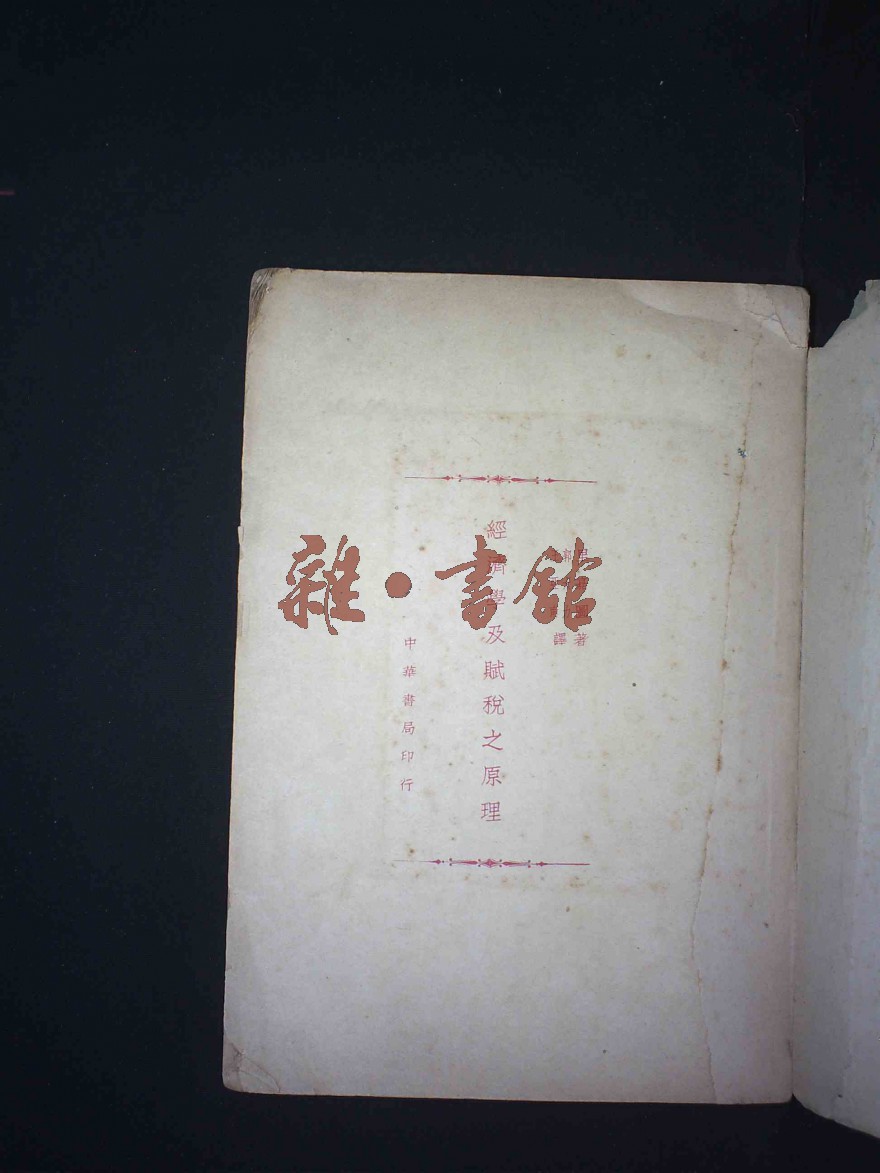 著
譯
經濟學及賦稅之原理
中華書局印行
雜·書館